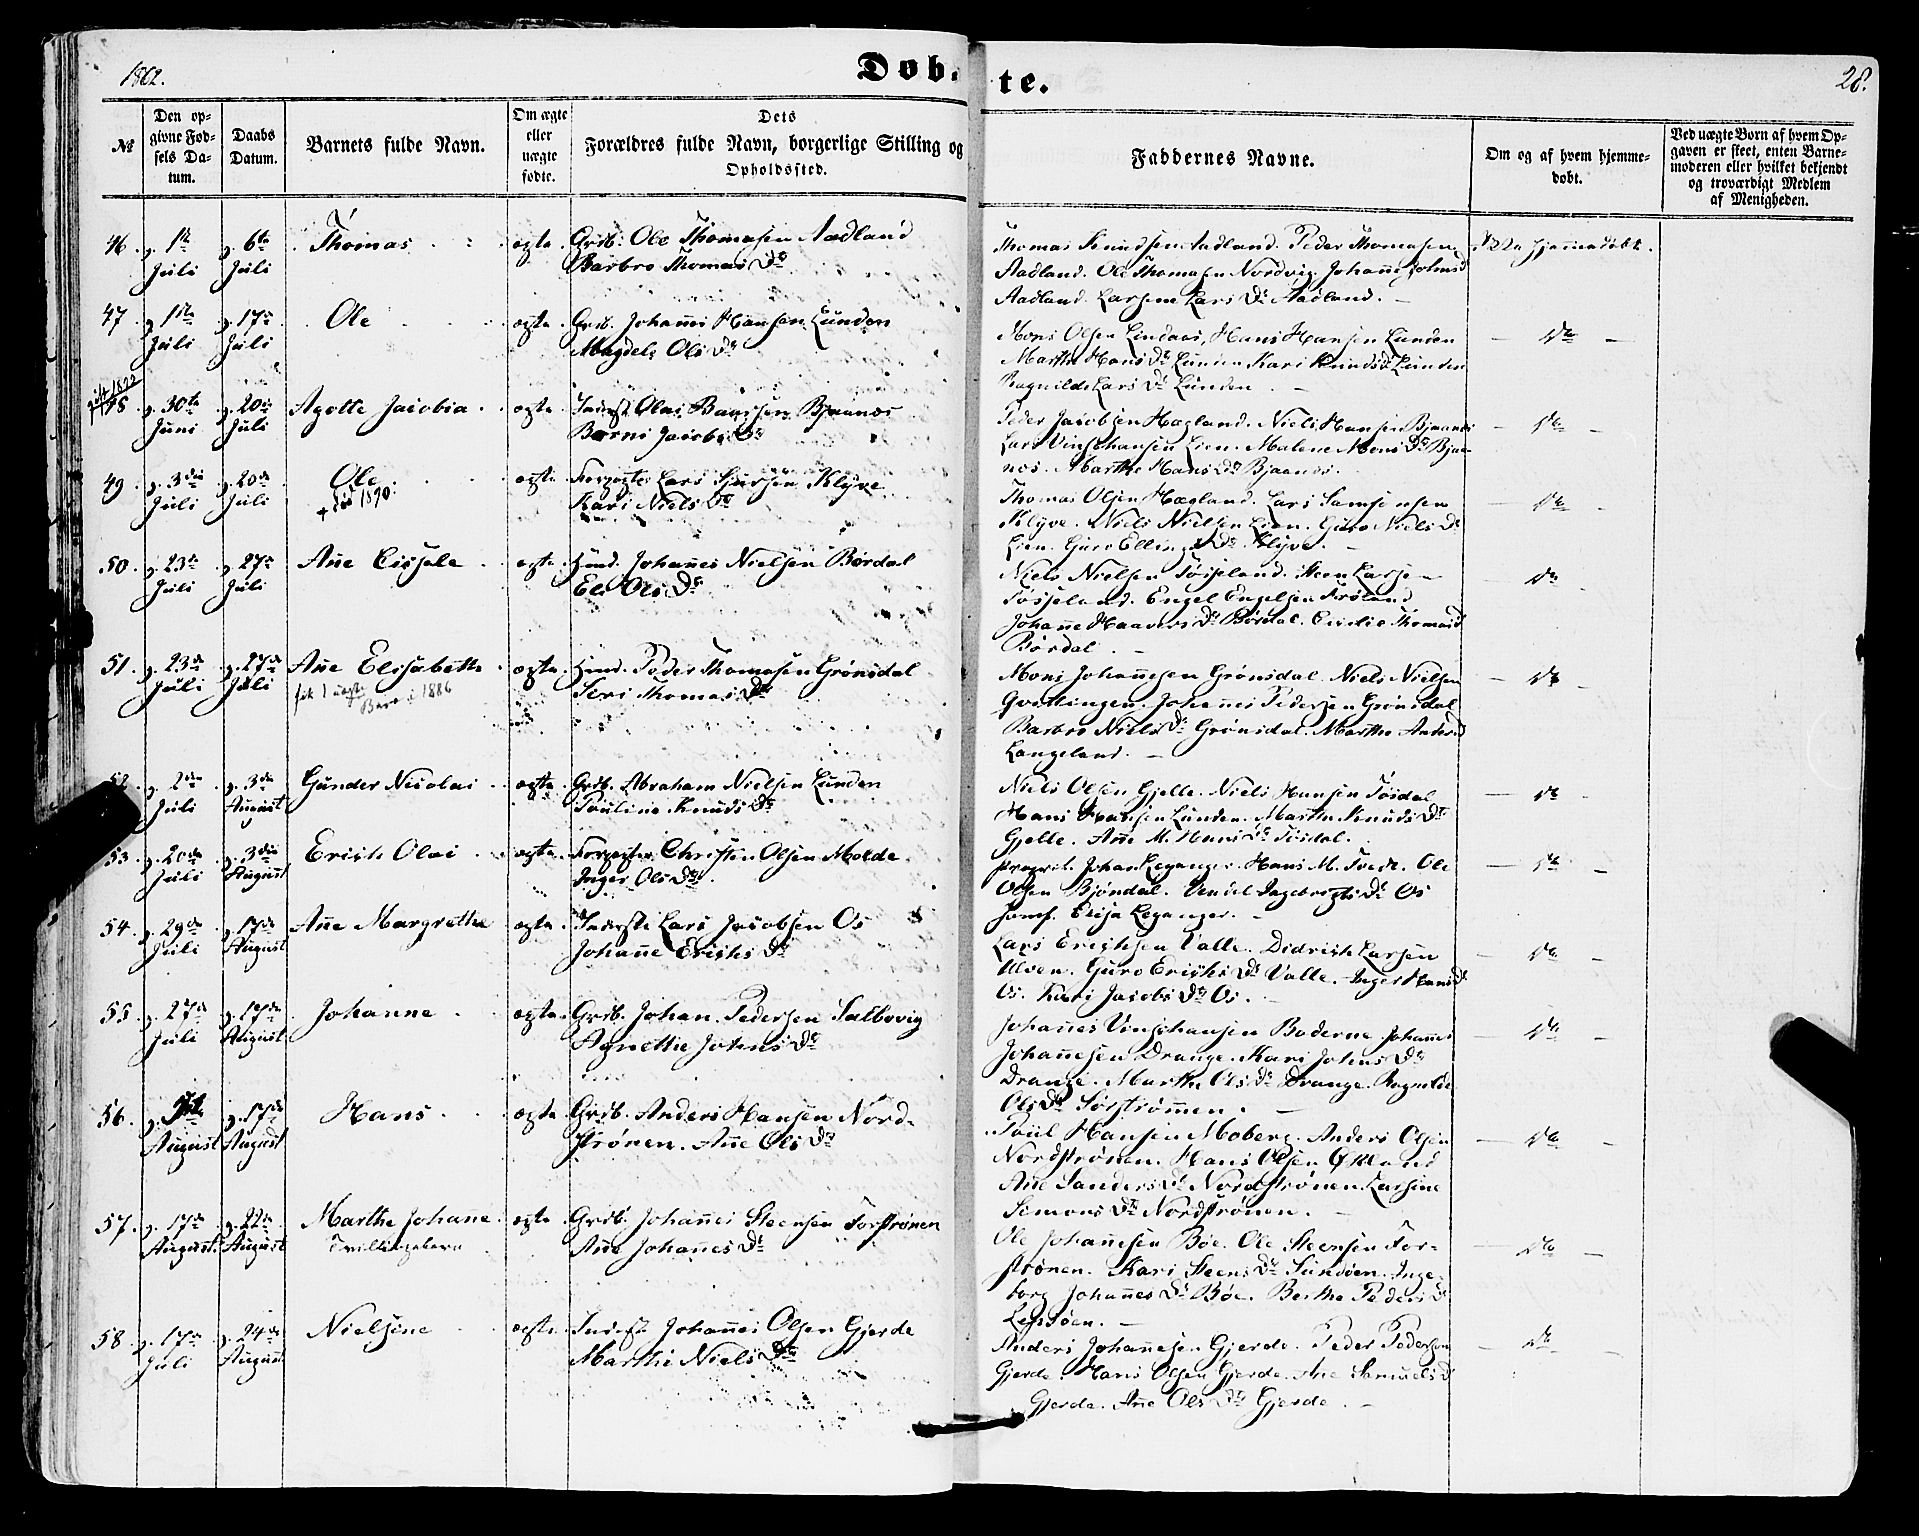 1862.
Døb-
te.
28.
№
Den op-
givne Fød-
sels Da-
tum.
Daabs
Datum.
Barnets fulde Navn.
Om ægte
eller
uægte
fødte.
Dets
Forældres fulde Navn, borgerlige Stilling og
Opholdssted.
Faddernes Navne.
Om og af hvem hjemme-
døbt.
Ved uægte Børn af hvem Op-
gaven er skeet, enten Barne-
moderen eller hvilket bekjendt
og troværdigt Medlem
af Menigheden.
46. g. 1ste Juli
g. 6te Juli
Thomas
ægte
Grdb. Ole Thomasen Aadland
Barbro Thomas Dr
Thomas Knudsen Aadland. Peder Thomasen
Aadland. Ole Thomasen Nordvig. Johanne Johns D
Aadland. Larsine Lars Dr Aadland.
Ikke hjemmedøbt.
47 g. 1ste Juli
g. 17de Juli
Ole
ægte
Grdb. Johannes Hansen Lunden
Magdele Ols Dr
Mons Olsen Lindaas, Hans Hansen Lunden
Marthe Hans Dr Lunden Kari Knuds D Lunden
Ragnilde Lars Dr Lunden
Do
gift 1822
48 g. 30te Juni
g. 20de Juli
Agotte Jacobia
ægte
Inderst Olai Baarsen Bjaanes
Berni Jacobs Dr
Peder Jacobsen Hægland. Niels Hansen Bjaanes
Lars Vinjohansen Lien. Malene Mons Dr Bjaa-
nes. Marthe Hans Dr Bjaanes.
Do
49 g. 3die Juli
g. 20de Juli
Ole
+ død 1890.
ægte
Forpagter Lars Sjursen Klyve
Kari Niels Dr
Thomas Olsen Hægland. Lars Samsonsen
Klyve. Niels Nielsen Lien. Guro Niels Dr
Lien. Guro Ellings Dr Klyve.
Do
50 g. 23de Juli
g. 27de Juli
Ane Cissele
ægte
Huusmd. Johannes Nielsen Børdal
Eli Ols Dr
Niels Nielsen Søfteland. Steen Larsen
Søfteland. Engel Engelsen Frøland
Johanne Haavers Dr Børdal. Cecilie Thomas D
Børdal.
Do
51. g. 23de Juli
g. 27de Juli
Ane Elisabeth
fik 1 uægte
Barn i 1886
ægte
Huusmd. Peder Thomasen Grønsdal
Seri Thomas Dr
Mons Johannesen Grønsdal. Niels Nielsen
Gvittingen. Johannes Pedersen Grønsdal
Barbro Niels Dr Grønsdal. Marthe Anders D
Langeland.
Do
52 g. 2den Juli
g. 3die August
Gunder Nicolai
ægte
Grdb. Abraham Nielsen Lunden
Pauline Knuds Dr
Niels Olsen Gjelle. Niels Hansen Tøsdal
Hans Hansen Lunden. Marthe Knuds Dr
Gjelle. Ane M. Hans Dr Tøsdal.
Do
53 g. 20de Juli
g. 3die August
Erich Olai
ægte
Forpagter Christen Olsen Molde
Inger Ols Dr.
Proprit. Johan Leganger. Hans M. Tvedt. Ole
Olsen Bjøndal. Vendel Ingebrigts Dr Os
Jomf. Elisa Leganger.
Do
54. g. 29de Juli
g. 17de August
Ane Margrethe
ægte
Inderste Lars Jacobsen Os
Johanne Erichs Dr
Lars Erichsen Valle. Didrich Larsen
Ulven. Guro Erichs Dr Valle. Inger Hans D
Os. Kari Jacobs Dr Os.
Do
55 g. 27de Juli
g. 17de August
Johanne
ægte
Grdb. Johan Pedersen Salbovig
Agnethe Johns Dr
Johannes Vinjohansen Boderne. Johannes
Johannesen Drange. Kari Johns Dr
Drange. Marthe Ols Dr Drange. Ragnilde
Ols Dr Sørstrømmen.
Do
56. g. 7de August
g. 17de August
Hans
ægte
Grdb. Anders Hansen Nord-
strønen. Ane Ols Dr
Poul Hansen Moberg. Anders Olsen
Nordstrønen. Hans Olsen Økland
Ane Sanders Dr Nordstrønen. Larsine
Simons Dr Nordstrønen.
Do
57. g. 17de August.
g. 22de August
Marthe Johane
Tvillingebarn
ægte
Grdb. Johannes Steensen Forstrønen
Ane Johannes Dr
Ole Johannesen Bøe. Ole Steensen For-
strønen. Kari Steens Dr Sundøen. Inge-
borg Johannes Dr Bøe. Berthe Peders D
Lepsøen.
Do
58 g. 17de Juli
g. 24de August
Nielsine
ægte
Inderst Johannes Olsen Gjerde
Marthe Niels Dr
Anders Johannesen Gjerde. Peder Pedersen
Gjerde. Hans Olsen Gjerde. Ane Samuels D
Gjerde. Ane Ols Dr Gjerde.
Do